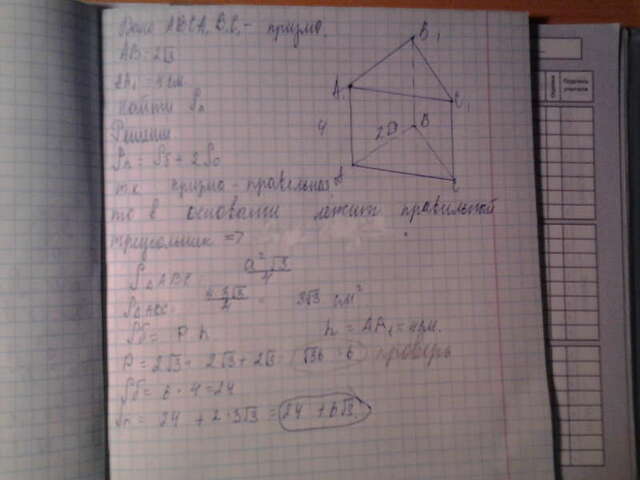 Дано ABCA₁B₁C₁ - призма.
AB = 2√3
AA₁ = 4 см.
Найти Sп
Решение
Sп = Sб + 2Sо
т.к призма - правильная,
то в основании лежит правильный
треугольник =>
S△ABC a²√3/4
S△ABC 4·3√3/4 = 3√3 см²
Sб = P h h = AA₁ = 4 см.
P = 2√3 + 2√3 + 2√3 √36 = 6 проверь
Sб = 6 · 4 = 24
Sп = 24 + 2·3√3 = 24 + 6√3
B₁
A₁
C₁
4
2√3
B
A
C
Оценка
Подпись учителя